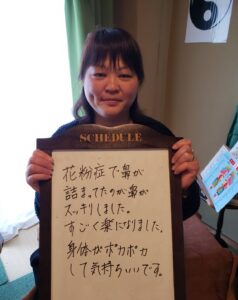 SCHEDULE
花粉症で鼻が
詰まってたのが鼻が
スッキリしました。
すごく楽になりました。
身体がポカポカ
して気持ちいいです。